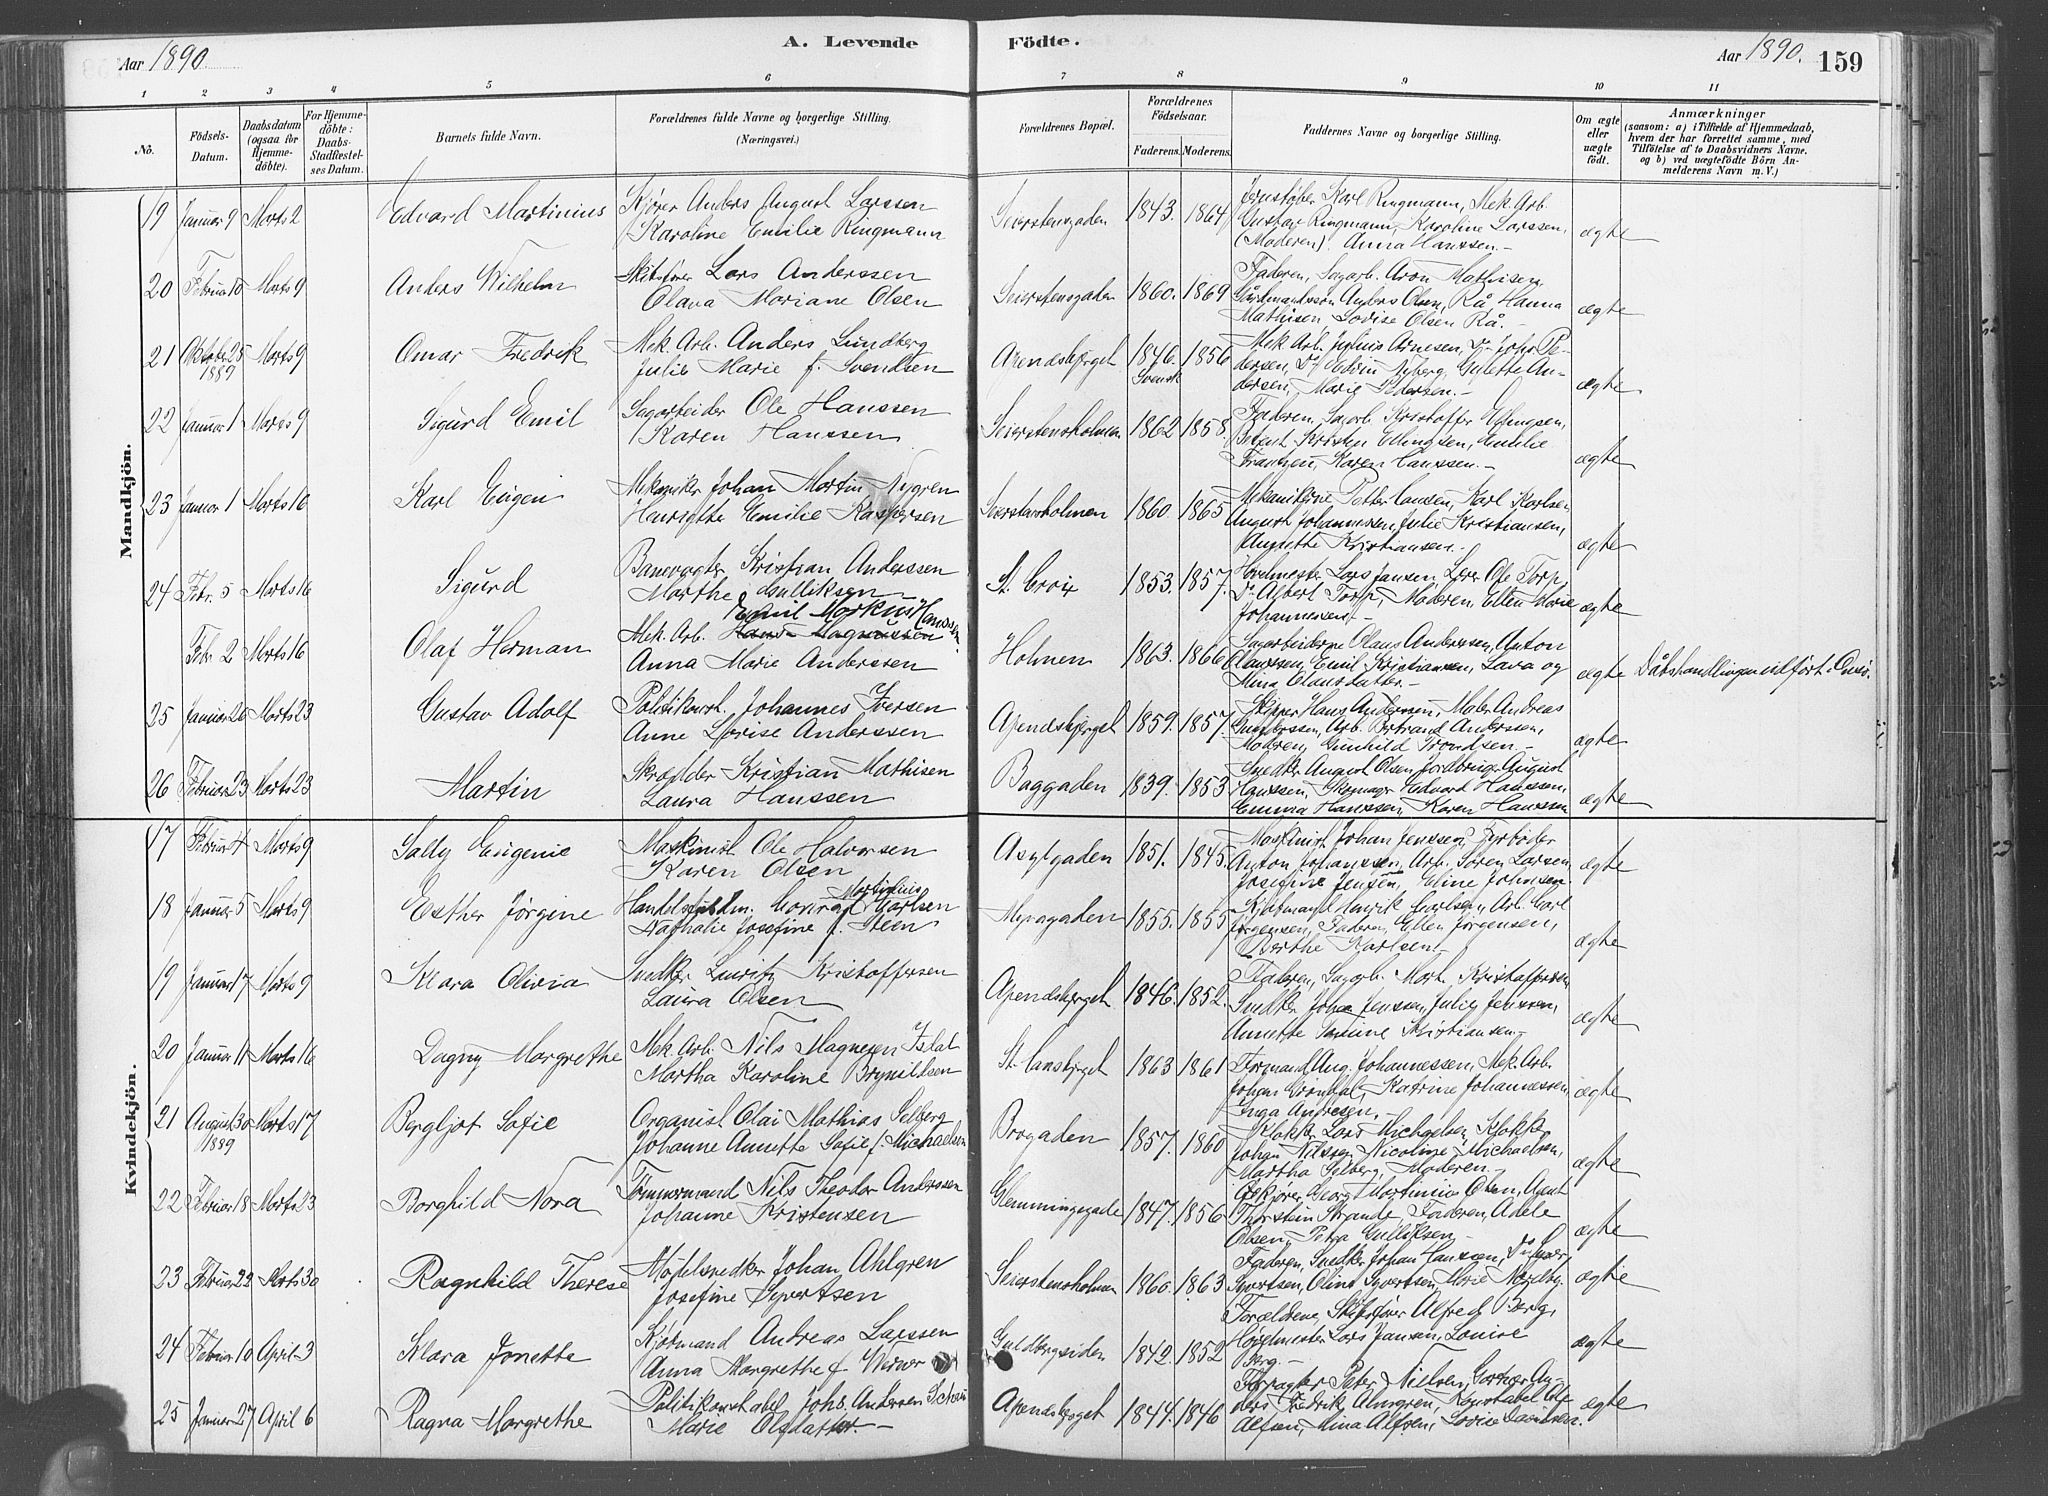 Aar 1890.
A. Levende Födte.
Aar 1890. 159
1 2 3 4 5 6 7 8 9 10 11
No.
Födsels-Datum.
Daabsdatum (ogsaa for Hjemmedöbte).
For Hjemmedöbte: Daabs-Stadfæstelses Datum.
Barnets fulde Navn.
Forældrenes fulde Navne og borgerlige Stilling.
(Næringsvei.)
Forældrenes Bopæl.
Forældrenes Födselsaar.
Faderens. Moderens.
Faddernes Navne og borgerlige Stilling.
Om ægte eller uægte født.
Anmærkninger
(saasom: a) i Tilfælde af Hjemmedaab, hvem der har forrettet samme, med Tilföielse af to Daabsvidners Navne. og b) ved uægtefödte Börn Anmelderens Navn m. V.)
Mandkjön.
19 Januar 9 Marts 2 Edvard Martinius Kjører Anders August Larssen
Karoline Emilie Ringmann
Seierstensgaden 1843. 1864 Jernstøber Karl Ringmann, Mek. Arb.
Gustav Ringmann, Karoline Larssen,
(Moderen). Anna Hanssen.- ægte
20 Februar 10 Marts 9 Anders Wilhelm Skibsfører Lars Anderssen
Olava Mariane Olsen
Seierstensgaden 1860. 1869 Faderen, Sagarb. Aron Mathisen,
Gårdmandssøn Anders Olsen, Rå Hanna
Mathisen Lovise Olsen Rå.- ægte
21 Oktober 25 1889 Marts 9 Omar Fredrik Mek. Arb. Anders Lundberg
Julie Marie f. Svendsen
Apendsbjerget 1846. Svensk 1856 Mek. Arb. Julius Arnesen, Do Johs. Pe-
dersen, Do Edvin Nyberg, Gulette An-
dersen, Marie Pedersen.- ægte
22 Januar 1 Marts 9 Sigurd Emil Sagarbeider Ole Hanssen
Karen Hanssen
Seierstensholmen 1862 1858. Faderen, Sagarb. Kristoffer
Kristen Emilie
Frantzen, Karen Hanssen.- ægte
23 Januar 1 Marts 16 Karl Eugen Mekaniker Johan Martin Nygren
Henriette Emilie Kaspersen
Seierstensholmen 1860. 1865 Mekanikerne Petter Hansen, Karl Karlsen,
August Johannessen, Julie Kristiansen,
Annette Kristiansen.- ægte
24 Febr. 5 Marts 16 Sigurd Banevogter Kristian Anderssen
Marthe Gulliksen
St. Croix 1853. 1857. Hovelmester Lars Jansen, Ole Torp,
Do Albert Torp, Moderen, Ellen Marie
Johannessen.- ægte
Febr 2 Marts 16 Olaf Herman Emil Markus Hanssen
Mek. Arb. Hans Magnussen
Anna Marie Anderssen
Holmen 1863. 1866 Sagarbeiderne Olaus Anderssen, Anton
Hanssen, Emil Kristiansen, Lava og
Mina Olausdatter.- ægte Dåbshandlingen udført i Onsø.
25 Januar 26 Marts 23 Gustav Adolf Politikonst. Johannes Iversen
Anne Lovise Anderssen
Apendsbjerget 1859. 1857. Skipper Hans Anderssen, Maler Andreas
Gunderssen, Arb. Bertrand Anderssen,
Moderen, Gunhild Trondsen.- ægte
26 Februar 23 Marts 23 Martin Skrædder Kristian Mathisen
Laura Hanssen
Baggaden 1839. 1853 Snedker August Olsen, Jordbruger August
Hanssen, Skomager Edvard Hanssen,
Emma Hanssen, Karen Hanssen ægte
Kvindekjön.
17 Februar 4 Marts 9 Sally Eugenie Maskinist Ole Halvorsen
Karen Olsen
Asylgaden 1851. 1845. Maskinist Johan Jenssen, Fyrbøder
Anton Johanssen, Arb. Søren Larsen,
Josefine Jensen, Eline Johnsen. ægte
18 Januar 5 Marts 9 Esther Jørgine Martinius
Handelsfuldm. Conrad Carlsen
Nathalie Josefine f. Steen
Myragaden 1855. 1855 Kjøbmand Henrik Carlsen, Arb. Carl
Jørgensen, Faderen, Ellen Jørgensen,
Berthe Karlsen.- ægte
19 Januar 17 Marts 9 Klara Olivia Snedker Lauritz Kristoffersen
Laura Olsen
Apendsbjerget 1846. 1852. Faderen, Sagarb. Mart. Kristoffersen,
Snedker Johan Jenssen, Julie Jenssen,
Annette Kristiansen.- ægte
20 Januar 11 Marts 16 Dagny Margrethe Mek. Arb. Nils Magnesen
Martha Karoline Brynildsen
St. Hansbjerget 1863 1861 Formand Aug. Johannessen, Mek. Arb.
Johan Grøndal, Katrine Johannessen,
Inga Andresen.- ægte
21 August 30 1889 Marts 17 Bergljot Sofie Organist Olai Mathias Selberg
Johanne Annette Sofie f. Michaelsen
Brogaden 1857. 1860 Klokker Lars Michaelsen, Klokker
Johan Nilssen, Nicoline Michaelsen,
Martha Selberg, Moderen.- ægte
22 Februar 18 Marts 23 Borghild Nora Tømmermand Nils Theodor Anderssen
Johanne Kristensen
Glemmingegade 1847. 1856 Georg Martinius Olsen, Agent
Thorstein Strande, Faderen, Adele
Olsen, Petra Gulliksen.- ægte
23 Februar 22 Marts 30 Ragnhild Therese Møbelsnedker Johan Ahlgren
Josefine Syvertsen
Seierstensholmen 1860. 1863 Faderen, Snedker Johan Hanssen,
Syvertsen, Oline Syvertsen, Marie Nordby. ægte
24 Februar 10 April 3 Klara Jonette Kjøbmand Andreas Larssen
Anna Margrethe f. Werner
Guldbergsiden 1842. 1852 Forældrene, Skibsfører Alfred Berg,
Høvelmester Lars Jansen, Louise
Berg.- ægte
25 Januar 27 April 6 Ragna Margrethe Politikonstabel Johs. Andersen
Marie Olsdatter.-
Apendsbjerget 1844. 1846 Forpagter Peter Nielsen, Gartner An-
ders Fredrik Almgren, Konstabel Ole
Alfsen, Mina Alfsen, Lovise Davidsen. ægte